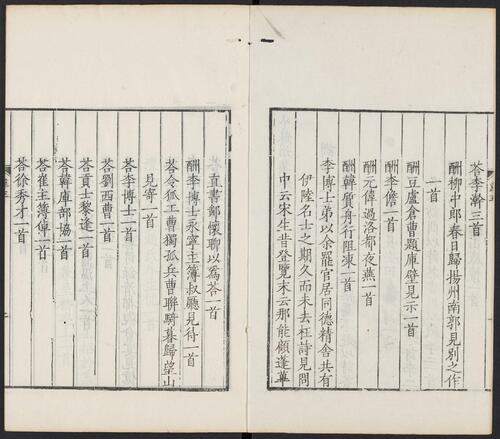 荅李澣三首
酬柳中郎春日歸揚州南郭見別之作
一首
酬豆盧倉曹題庫壁見示一首
酬李儋一首
酬元偉過洛都夜燕一首
酬韓質舟行阻凍一首
李博士弟以余罷官居同德精舎共有
伊陸名士之期久而未去枉詩見問
中云宋生昔登覽末云那能顧蓬蓽
直書鄙懷聊以爲荅一首
酬李博士永寧主簿叔㕔見待一首
荅令狐工曹獨孤兵曹聯騎暮歸望山
見寄一首
荅李博士一首
荅劉西曹一首
荅貢士黎逢一首
荅韓庫部協一首
荅崔主簿倬一首
荅徐秀才一首